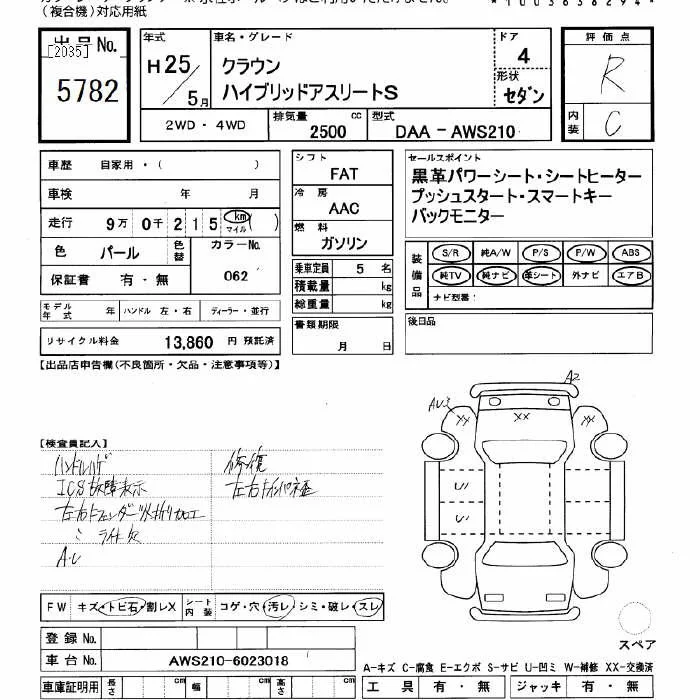 （複合機）対応用紙
出品No.
[2035]
5782
年式
H25/5月
車名・グレード
クラウン
ハイブリッドアスリートS
ドア
4
形状
セダン
2WD・4WD
排気量
2500
cc
型式
DAA－AWS210
評価点
R
内装
C
車歴 自家用・（ ）
車検 年 月
走行 9万 0千 215 km マイル ( )
色 パール
色替
カラーNo.
062
保証書 有・無
モデル年式 年
ハンドル 左・右
ディーラー・並行
リサイクル料金 13,860 円 預託済
シフト
FAT
冷房
AAC
燃料
ガソリン
乗車定員 5 名
積載量 kg
総重量 kg
書類期限
月 日
セールスポイント
黒革パワーシート・シートヒーター
プッシュスタート・スマートキー
バックモニター
装備品
S/R 純A/W P/S P/W ABS
純TV 純ナビ 革シート 外ナビ エアB
ナビ型番：
後日品
【出品店申告欄(不良箇所・欠品・注意事項等)】
【検査員記入】
ハンドルハゲ
ICS故障表示
ミ ライト欠
A・U
修復
A2
AU3
XX
XX
XX
U
U
FW キズ・トビ石・割レX
シート内装 コゲ・穴・汚レ・シミ・破レ・スレ
登録No.
車台No. AWS210-6023018
車庫証明用 長さ cm 幅 cm 高さ cm
スペア
A-キズ C-腐食 E-エクボ S-サビ U-凹ミ W-補修 XX-交換済
工具 有・無 ジャッキ 有・無